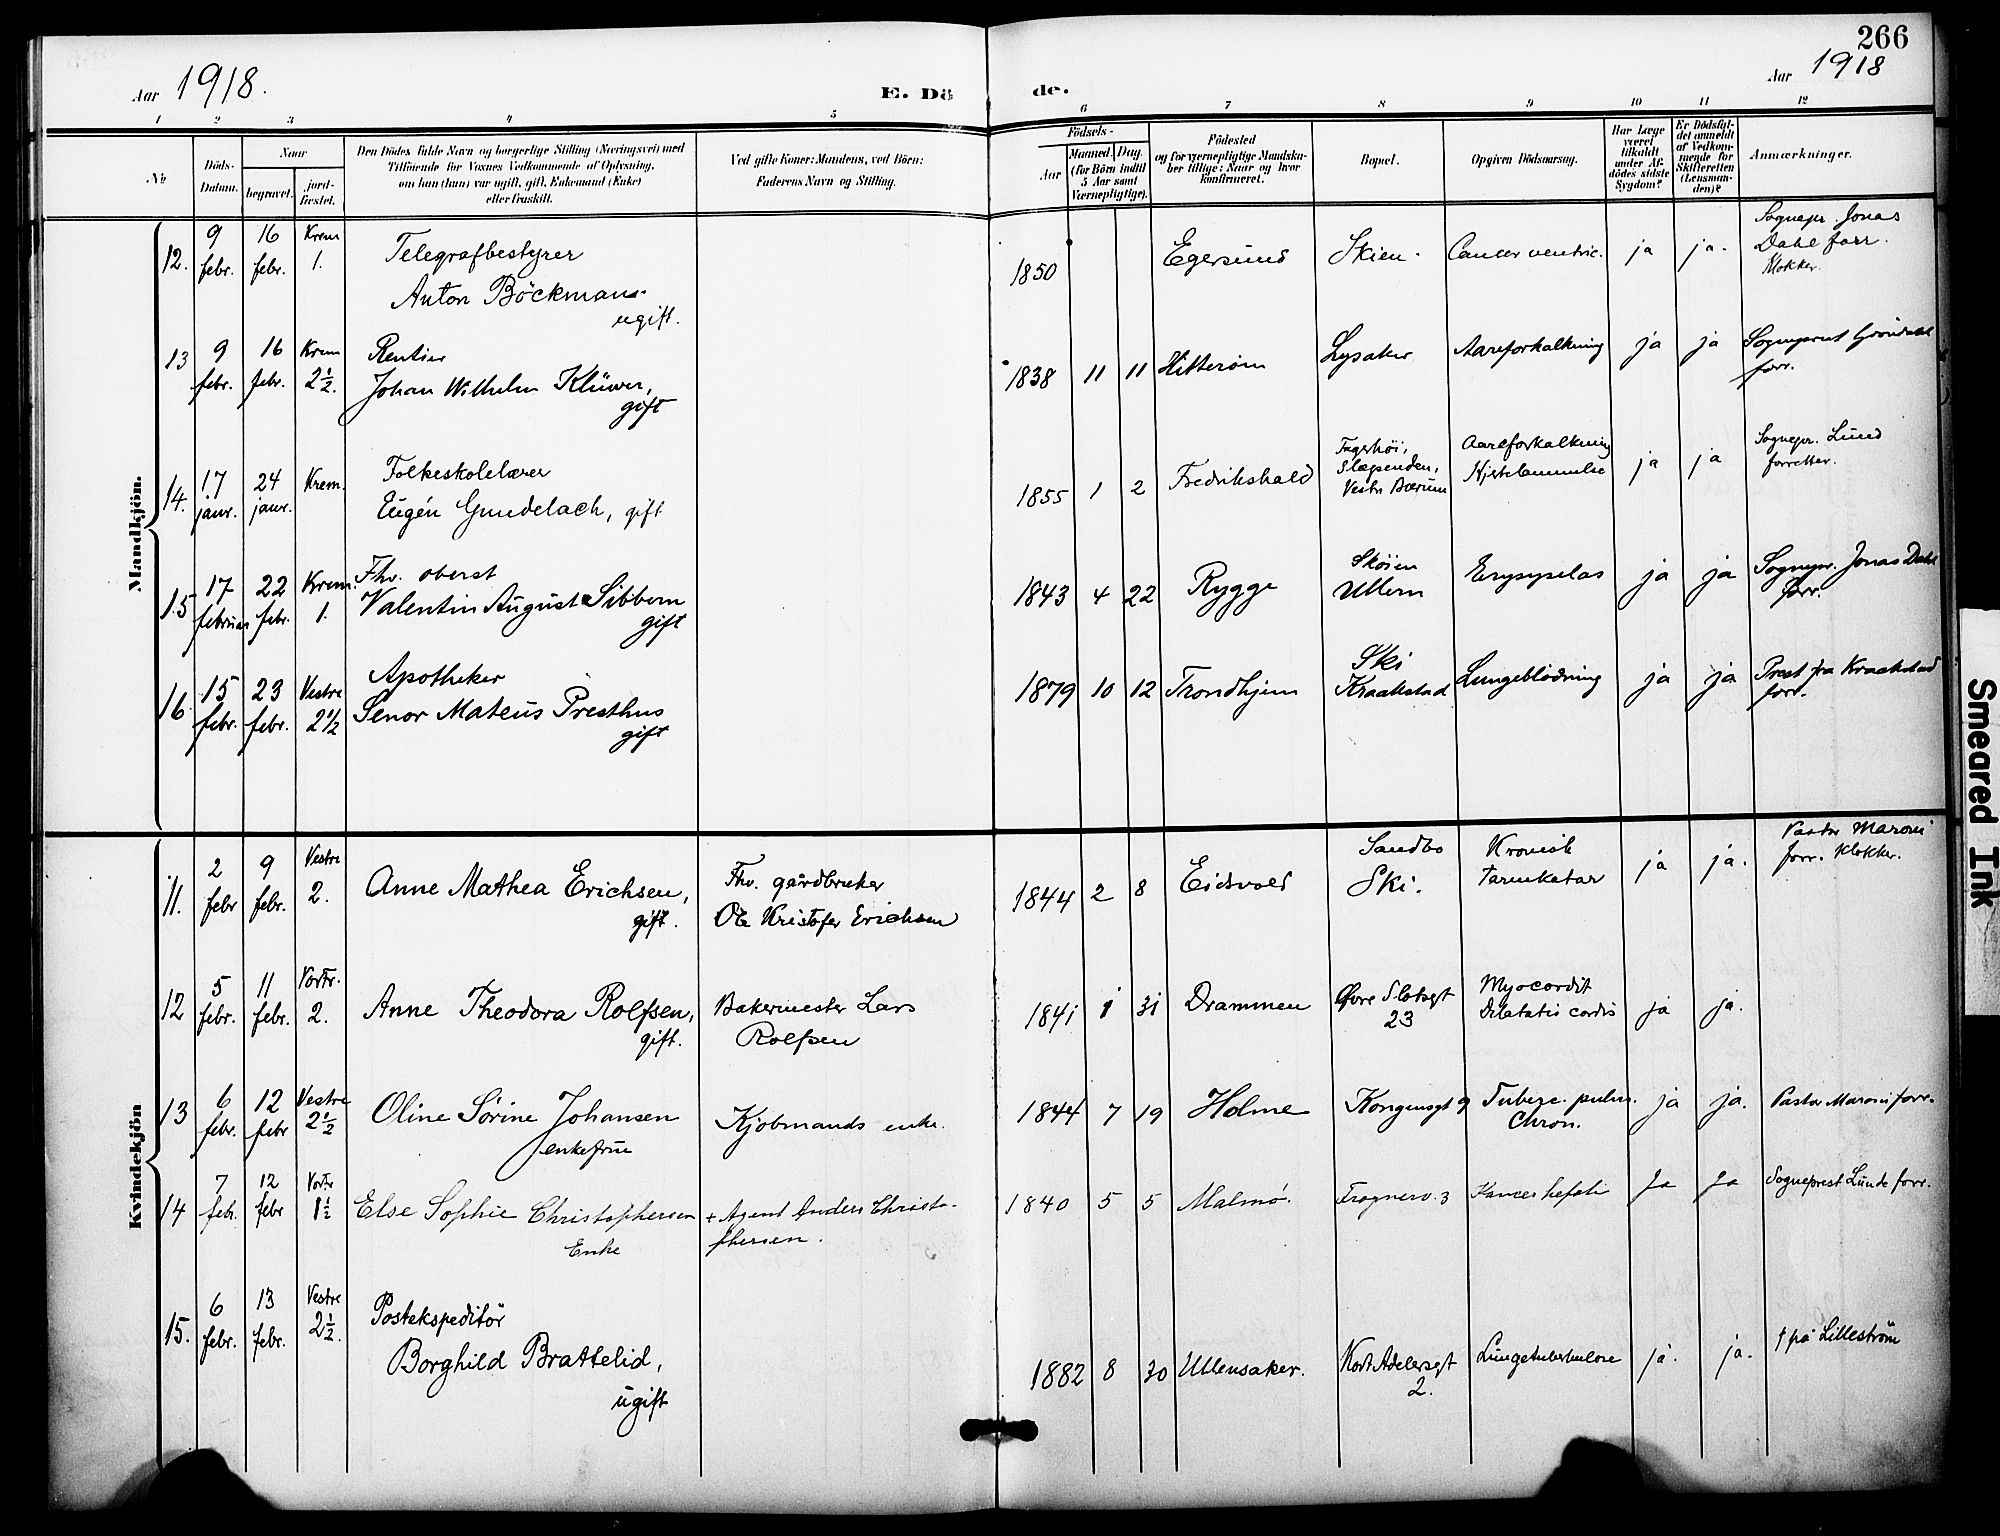 266
Aar 1918.
E. Döde.
Aar 1918
1 2 3 4 5 6 7 8 9 10 11 12
No
Döds-
Datum.
Naar
begravet.
jord-
fæstet.
Den Dödes fulde Navn og borgerlige Stilling (Næringsvei) med
Tilföiende for Voxnes Vedkommende af Oplysning,
om han (hun) var ugift, gift, Enkemand (Enke)
eller fraskilt.
Ved gifte Koner: Mandens, ved Börn:
Faderens Navn og Stilling.
Födsels-
Aar
Maaned. Dag.
(for Börn indtil
5 Aar samt
Værnepligtige).
Födested
og for værnepligtige Mandska-
ber tillige: Naar og hvor
konfirmeret.
Bopæl.
Opgiven Dödsaarsag.
Har Læge
været
tilkaldt
under Af-
dödes sidste
Sygdom?
Er Dödsfal-
det anmeldt
af Vedkom-
mende for
Skifteretten
(Lensman-
den)?
Anmærkninger.
Mandkjön.
12. 9 febr. 16 febr. Krem 1.
Telegrafbestyrer
Anton Böckman
ugift.
1850 Egersund Skien. Cancer ventric. ja ja.
Sognepr. Jonas
Dahl forr.
Klokker.
13 9 febr. 16 febr. Krem 2½.
Rentier
Johan Wilhelm Klüwer,
gift
1838 11 11 Hitterøen Lysaker Aareforkalkning ja ja
forr.
14. 17 janr. 24 janr. Krem.
Folkeskolelærer
Eugén Gundelach, gift
1855 1 2 Fredrikshald
Slæpenden,
Vestre Bærum
Aareforkalkning
Hjertelammelse
ja ja
Sognepr. Lund
forretter.
15 17 februar 22 febr. Krem. 1.
Fhv. oberst
Valentin August Sibbern
gift
1843 4 22 Rygge
Skøien
Ullern
Erysypelas ja ja
Sognepr. Jonas Dahl
forr.
16 15 febr. 23 febr. Vestre 2½
Apotheker
Senor Mateus Presthus
gift
1879 10 12 Trondhjem
Ski
Kraakstad
Lungeblödning ja ja
Prest fra Kraakstad
forr.
Kvindekjön
11. 2 febr 9 febr. Vestre 2.
Anne Mathea Erichsen,
gift.
Fhv. gårdbruker
Ole Kristofer Erichsen
1844 2 8 Eidsvold
Sandbo
Ski.
Kronisk
Tarmkatar
ja ja.
Pastor Maroni
forr. Klokker.
12 5 febr. 11 febr. Vortr. 2.
Anne Theodora Rolfsen,
gift.
Bakermester Lars
Rolfsen
1841 1 31 Drammen
Øvre Slotsgt
23
Myocordit
Dilatatio cordis
ja ja.
13 6 febr. 12 febr Vestre 2½
Oline Sörine Johansen
enkefrue
Kjøbmands enke.
1844 7 19 Holme Kongensgt 9
Tuberc. pulm.
Chron.
ja ja.
Pastor Maroni forr.
14 7 febr. 12 febr Vortr 1½
Else Sophie Christophersen
Enke
+ Agent Anders Christo-
phersen.
1840 5 5 Malmø. Frognerv. 3 Kancer hepatis Ja Ja
Sogneprest Lunde forr.
15. 6 febr. 13 febr. Vestre 2½.
Postekspeditör
Borghild Brattelid,
ugift
1882 8 30 Ullensaker.
Kort Adelersgt
2.
Lungetuberkulose ja. ja.
† på Lillestrøm
Smeared Ink